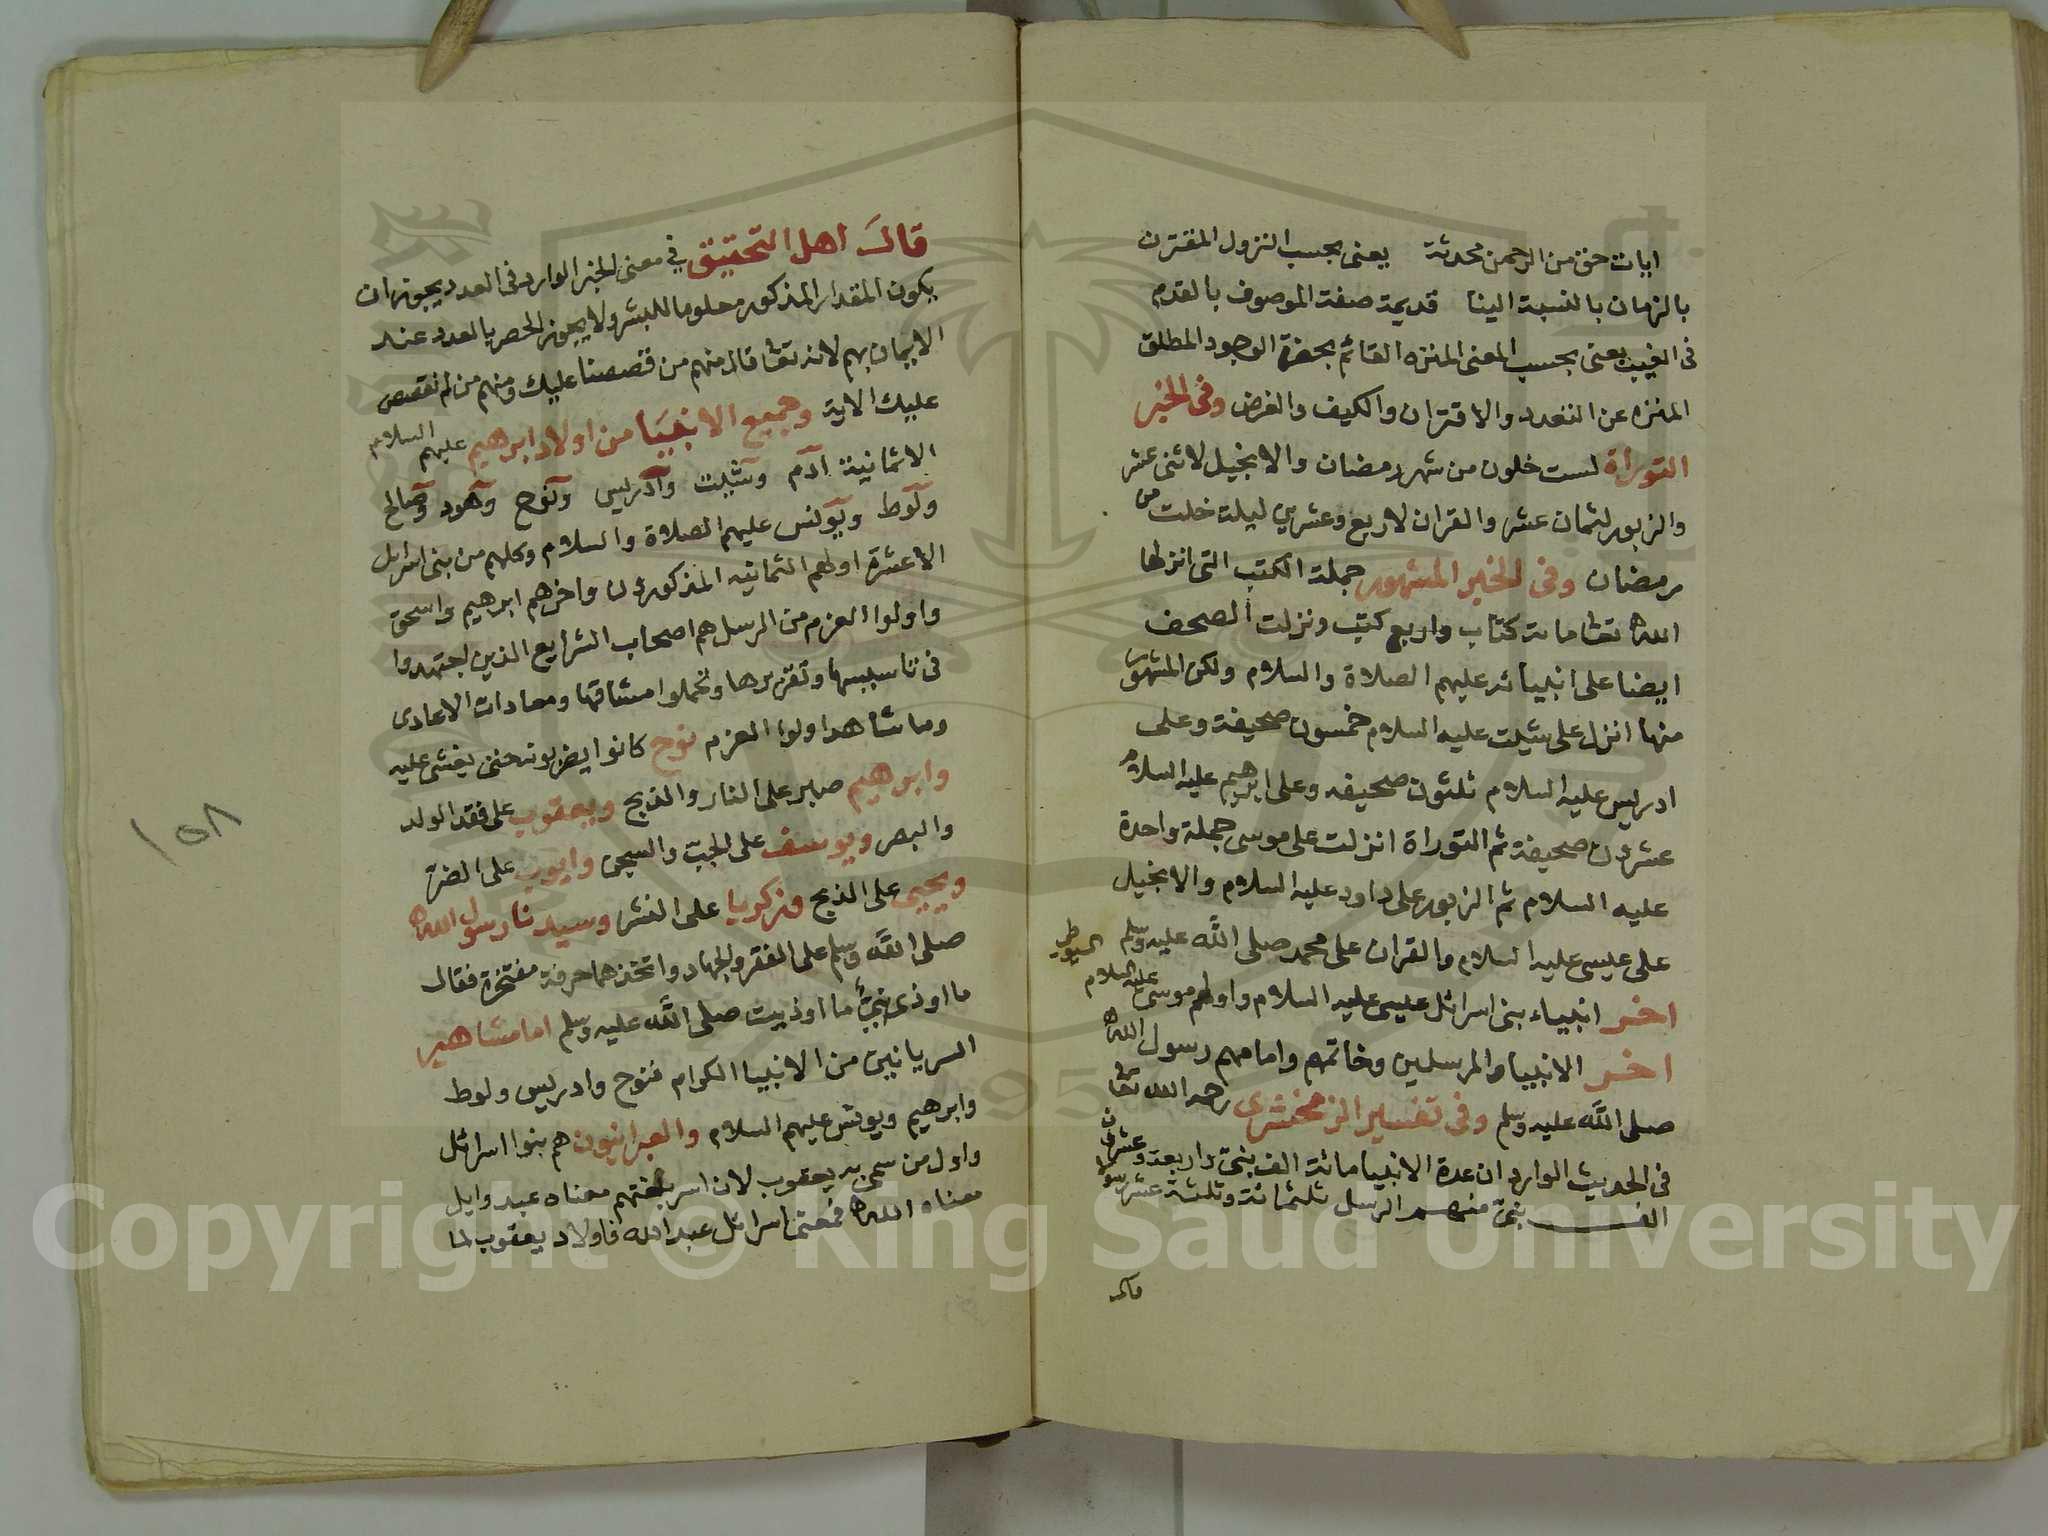 ايات حق من الرحمن محدثة يعنى بحسب النزول المقترن
بالزمان بالنسبة الينا قديمة صفة الموصوف بالقدم
فى الغيب يعنى بحسب المعنى المنزه القائم بحضرة الوجود المطلق
المنزه عن التعدد والاقتران والكيف والغرض وفى الخبر
التوراة لست خلون من شهر رمضان والانجيل لاثنى عشر
والزبور لثمان عشر والقران لاربع وعشرين ليلة خلت من
رمضان وفى الخبر المشهور جملة الكتب التى انزلها
الله تعا مائة كتاب واربع كتب ونزلت الصحف
ايضا على انبيائه عليهم الصلاة والسلام ولكن المشهور
منها انزل على شيث عليه السلام خمسون صحيفة وعلى
ادريس عليه السلام ثلثون صحيفه وعلى ابرهيم عليه السلام
عشرون صحيفة ثم التوراة انزلت على موسى جملة واحدة
عليه السلام ثم الزبور على داود عليه السلام والانجيل
على عيسى عليه السلام والقران على محمد صلى الله عليه وسلم السيوطى
اخر انبياء بنى اسرائل عيسى عليه السلام واولهم موسى عليه السلام
اخر الانبيا والمرسلين وخاتمهم وامامهم رسول الله
صلى الله عليه وسلم وفى تفسير الزمخشرى رحمه الله تعا
فى الحديث الوارد ان عدة الانبيا مائة الف نبى واربعة وعشرون
الف نبى منهم الرسل ثلثمائة وثلثة عشر رسول
قال
قال اهل التحقيق فى معنى الخبر الوارد فى العدد يجوز ان
يكون المقدار المذكور معلوما للبشر ولا يجوز الحصر بالعدد عند
الايمان بهم لانه تعا قال منهم من قصصنا عليك ومنهم من لم نقصص
عليك الاية وجميع الانبيا من اولاد ابرهيم عليهم السلام
الا ثمانية آدم وشيث وادريس ونوح وهود وصالح
ولوط ويونس عليهم الصلاة والسلام وكلهم من بنى اسرايل
الا عشرة اولهم الثمانيه المذكورون واخرهم ابرهيم واسحق
واولوا العزم من الرسل هم اصحاب الشرايع الذين اجتهدوا
فى تاسيسها وتقريرها وتحملوا مشاقها ومعادات الاعادى
وما شاهد اولوا العزم نوح كانوا يضربونه حتى يغشى عليه
وابرهيم صبر على النار والذبح ويعقوب على فقد الولد
والبصر ويوسف على الجب والسجن وايوب على الضر
ويحيى على الذبح وزكريا على النشر وسيدنا رسول الله
صلى الله وسلم على الفقر والجهاد واتخذهما حرفة مفتخرة فقال
ما اوذى نبى ما اوذيت صلى الله عليه وسلم اما مشاهير
السريانيين من الانبيا الكرام فنوح وادريس ولوط
وابرهيم ويونس عليهم السلام والعبرانيون هم بنوا اسرائل
واول من سمى به يعقوب لان اسر بلغتهم معناه عبد وايل
معناه الله فمعنى اسرائل عبد الله فاولاد يعقوب لما
١٥٨
Copyright © King Saud University
1957